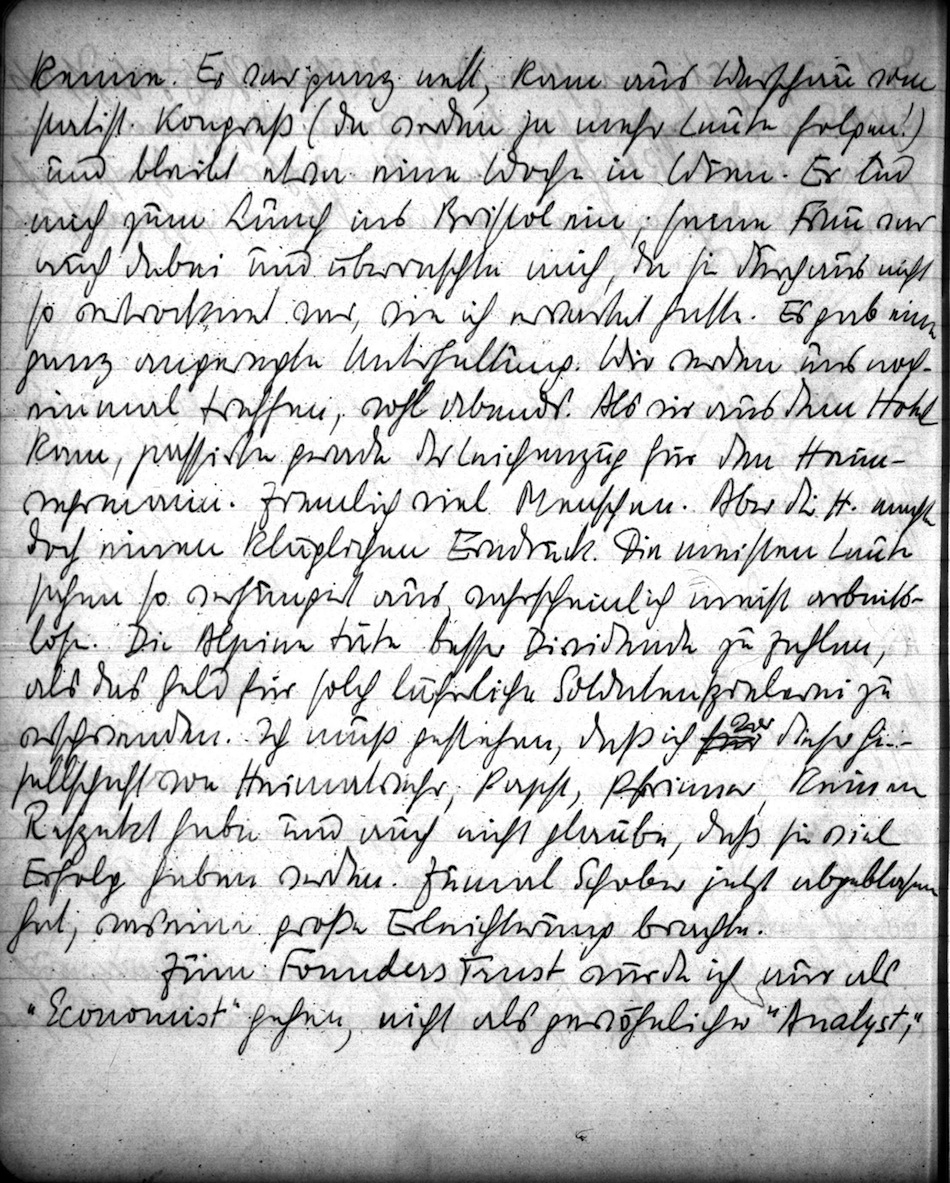 kenne. Er war ganz nett, kam aus Warschau vom
statist. Kongreß (da werden ja mehr Leute folgen!)
und bleibt etwa eine Woche in Wien. Er lud
mich zum Lunch ins Bristol ein; seine Frau war
auch dabei und überraschte mich, da sie durchaus nicht
so vertrocknet war, wie ich erwartet hatte. Es gab eine
ganz angeregte Unterhaltung. Wir werden uns noch-
einmal treffen, wohl abends. Als wir aus dem Hotel
kam, passierte gerade der Leichenzug für den Heim-
wehrmann. Ziemlich viel Menschen. Aber die H. macht
doch einen kläglichen Eindruck. Die meisten Leute
sehen so verhungert aus, wahrscheinlich meist arbeits-
lose. Die Alpine täte besser Dividende zu zahlen,
als das Geld für solch lächerliche Soldatenspielerei zu
verschwenden. Ich muß gestehen, daß ich vor dieser Ge-
sellschaft von Heimatwehr, Papst, Pfrimer, keinen
Respekt habe und auch nicht glaube, daß sie viel
Erfolg haben werden. Zumal Schober jetzt abgeblasen
hat, was eine große Erleichterung brachte.
Zum Founders Trust würde ich nur als
"Economist" gehen, nicht als gewöhnlicher "Analyst,"